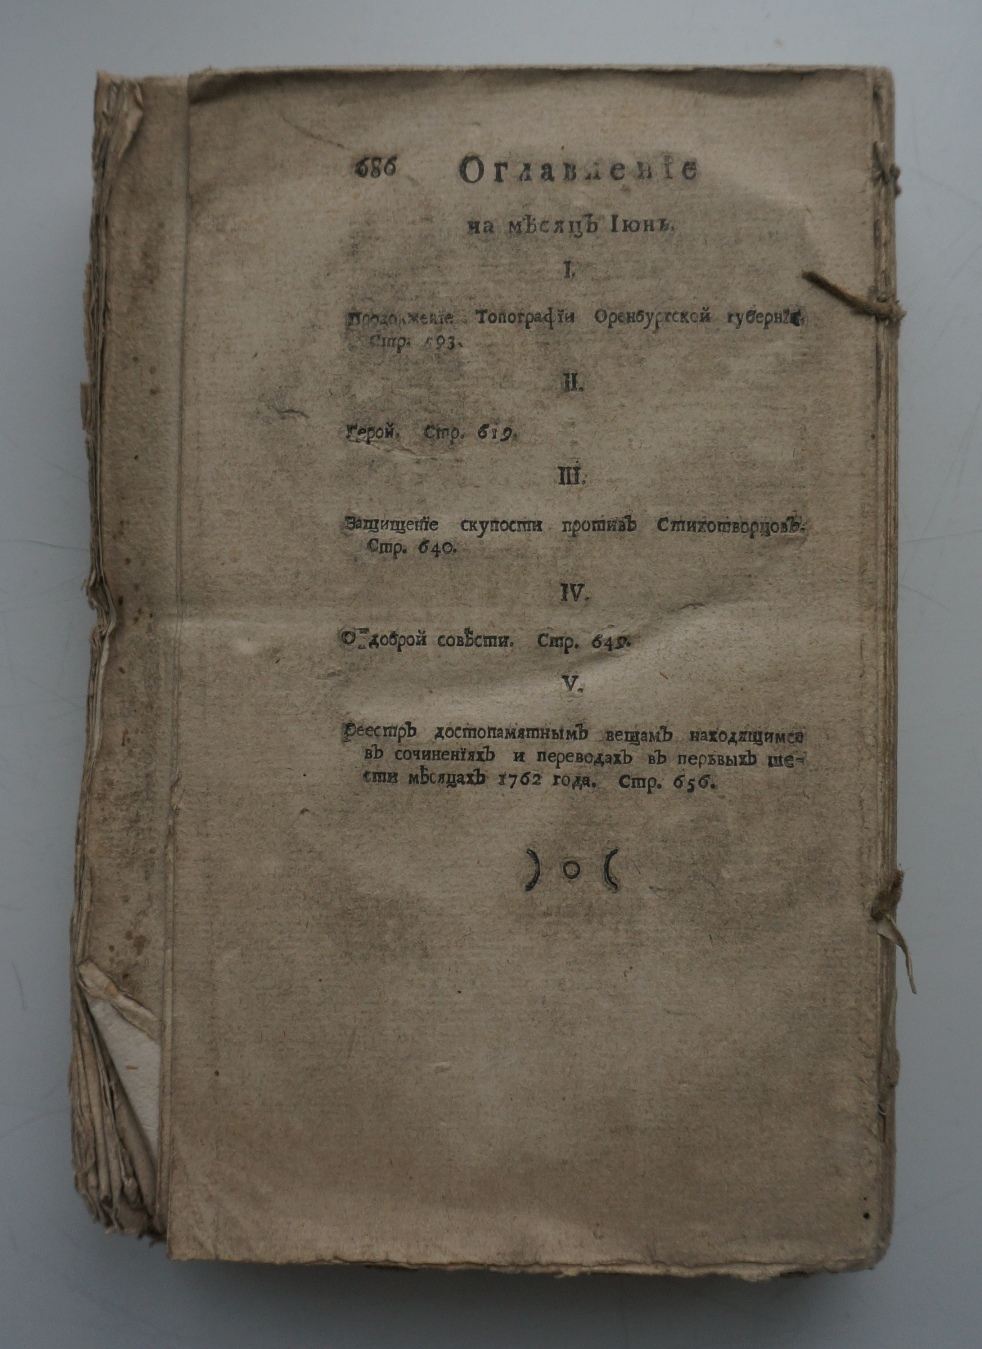 686 Оглавленіе
на мѣсяцъ Іюнь.
I.
Продолженіе Топографїи Оренбургской губерніи.
Стр. 593.
II.
Герой. Стр. 619.
III.
Защищенїе скупости противъ Стихотворцовъ.
Стр. 640.
IV.
О доброй совѣсти. Стр. 649.
V.
Реестръ достопамятнымъ вещамъ находящимся
въ сочиненїяхъ и переводахъ въ первыхъ ше-
сти мѣсяцахъ 1762 года. Стр. 656.